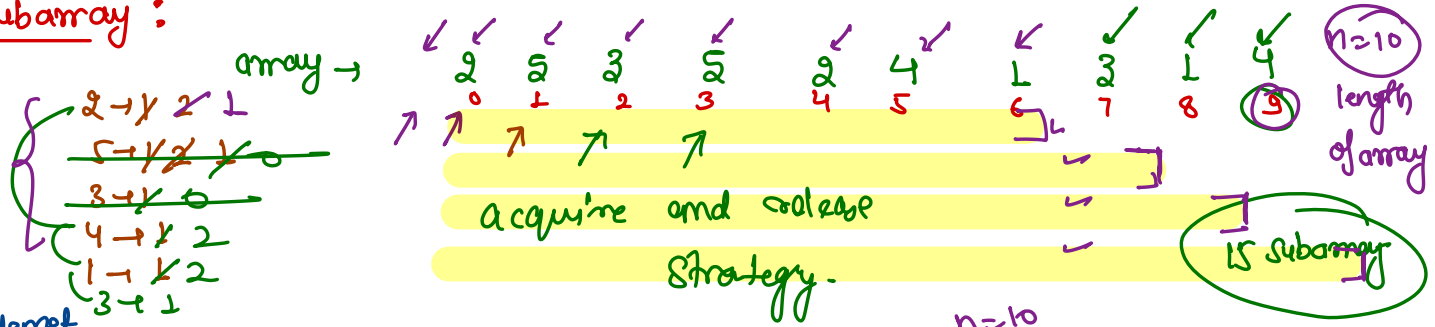 ubarray :
array → 2 5 3 5 2 4 1 3 1 4 n=10
0 1 2 3 4 5 6 7 8 9 length
of array
2 → 1 2 1
5 → 1 2 1 0
3 → 1 0
4 → 1 2
1 → 1 2
3 → 1
acquire and release
strategy.
15 subarray
n=10